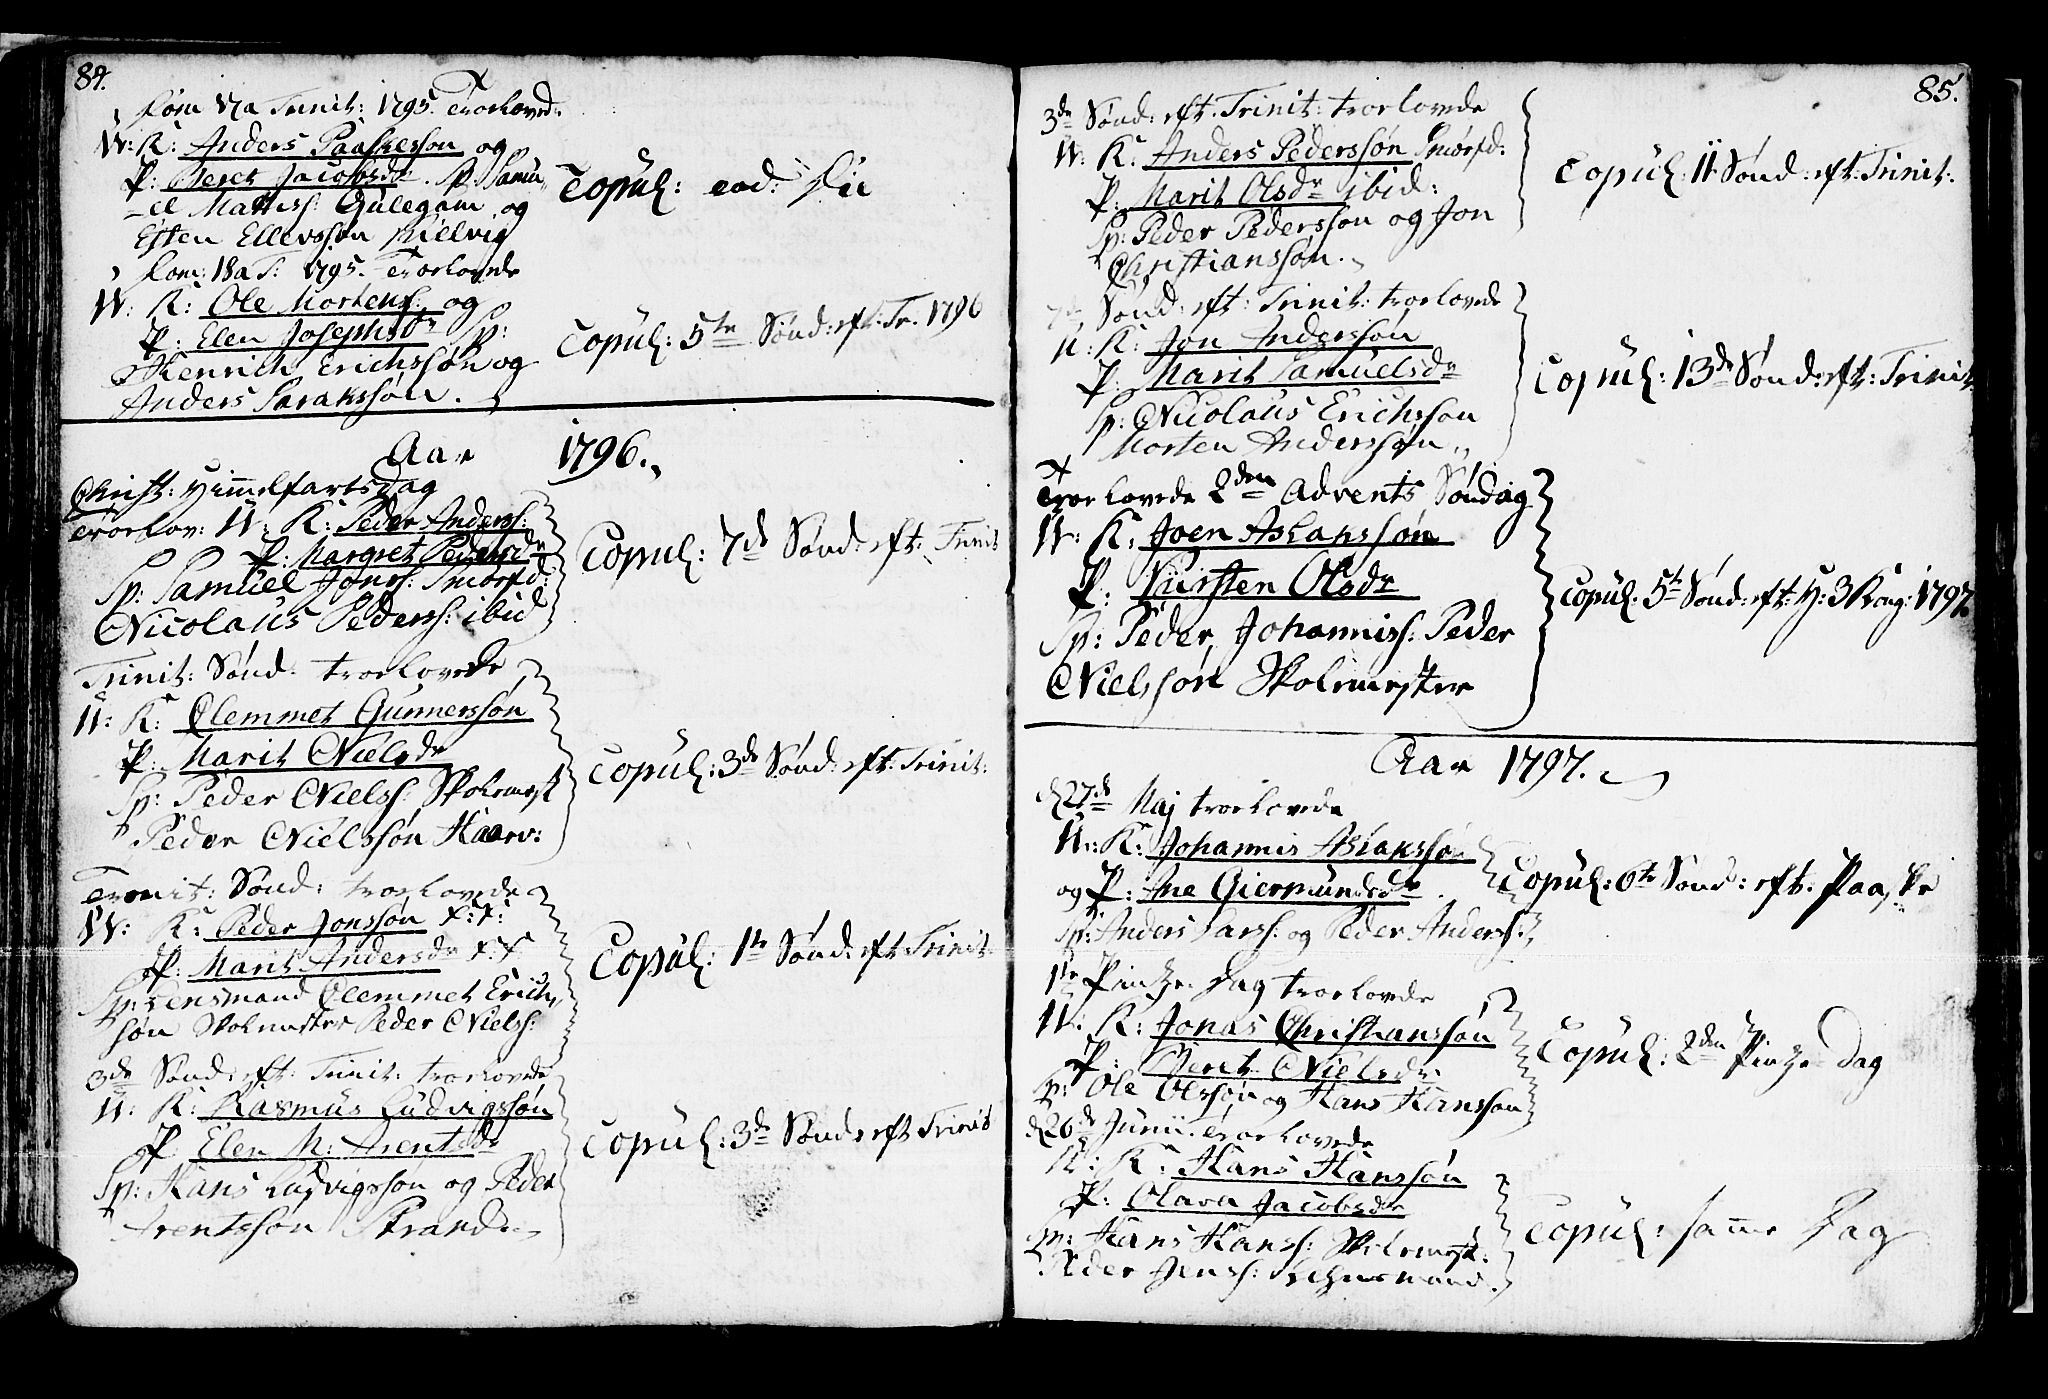 84.
Dom 17 a Trinit: 1795. Trorloved:
U: K: Anders Paaskesson og
P: Beret Jacobsdr. Sp: Samu-
-el Mattiss: Gulegam og
Esten Ellevsson
Copul: eod: Die
Dom: 18 a T: 1795. Trorlovede
U: K: Ole Mortens: og
P: Elen Josephsdr Sp:
Henrich Erichssøn og
Anders Saraksson.
Copul: 5te Sønd: eft: Tr. 1796
Aar 1796.
Christ: Himmelfartsdag
trorlov: U: K: Peder Anderss:
P: Margret Pedersdr
Sp: Samuel Jonss: Smørfd:
Nicolaus Pederss: ibid
Copul: 7de Sønd: eft: Trinit
Trinit: Sønd: trorlovede
U: K: Clemmet Gunnerssøn
P: Marit Nielsdr
Sp: Peder Nielss: Skolemest
Peder Nielssøn Haarv:
Copul: 3de Sønd: eft: Trinit:
Trinit: Sønd: trorlovede
U: K: Peder Jonssøn
P: Marit Andersdr
Sp: Lensmand Clemmet Erich-
søn Skolemester Peder Nielss:
Copul: 1te Sønd: eft Trinit
3de Sønd: eft: Trinit: trorlovede
U: K: Rasmus Ludvigssøn
P Elen M: Arentsdr
Sp: Hans Ludvigssøn og Peder
Arentssøn Strand
Copul: 3de Sønd: eft Trinit
85.
3de Sønd: eft. Trinit: trorlovede
U: K: Anders Pederssøn Smørfd:
P: Marit Olsdr ibid:
Sp: Peder Pederssøn og Jon
Christianssøn.
Copul: 11 Sønd: eft: Trinit:
7de Sønd: eft: Trinit: trorlovede
U: K: Jon Anderssøn
P: Marit Samuelsdr
Sp: Nicolaus Erichsson
Morten Anderssøn
Copul: 13de Sønd: eft: Trinit
Trorlovede 2den Advents Søndag
U: K: Joen Aslakssøn
P: Kirsten Olsdr
Sp: Peder Johanniss: Peder
Nielssøn Skolemester
Copul: 5te Sønd: eft: H: 3 Kong: 1797
Aar 1797.
d 27de Maj trorlovede
U: K: Johannis Aslakssøn
og P: Ane Giermundsdr.
Sp: Anders Larss: og Peder Anderss:
Copul: 6te Sønd: eft: Paaske
1te Pintze Dag trorlovede
U: K: Jonas Christianssøn
P: Beret Nielsdr
Sp: Ole Olssøn og Hans Hanssøn
Copul: 2den Pintze Dag
d 26de Junii trorlovede
U: K: Hans Hanssøn
P: Olava Jacobsdr
Sp: Hans Hanss: Skolemest:
Peder Jenss: Lehnsmand.
Copul: samme Dag